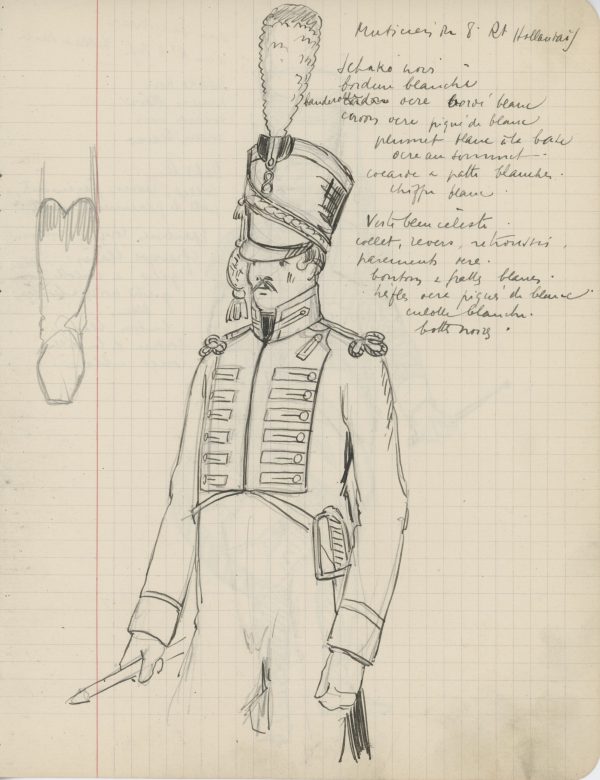 Musicien du 8. Rt Hollandais
Schako noir
bordure blanche
banderole ocre bordé blanc
cordons ocre piqué de blanc
plumet blanc à la base
ocre au sommet.
cocarde & patte blanches.
chiffre blanc.
Veste bleu céleste.
collet, revers, retroussis,
parements ocre.
boutons & pattes blancs.
trèfles ocre piqué de blanc
culotte blanche.
bottes noires.